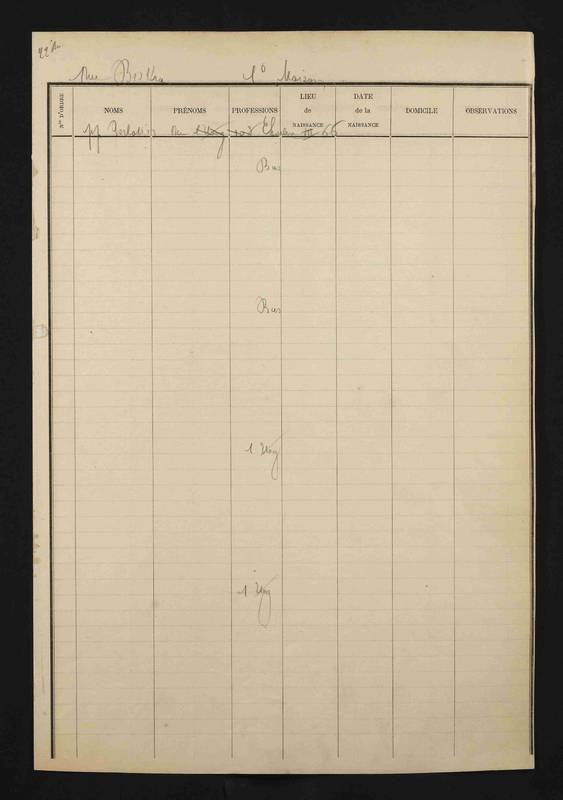 Rue Biskra 1º Maison
Nos D'ORDRE NOMS PRÉNOMS PROFESSIONS LIEU de NAISSANCE DATE de la NAISSANCE DOMICILE OBSERVATIONS
Bas
Bas
1 Etag
1 Etag